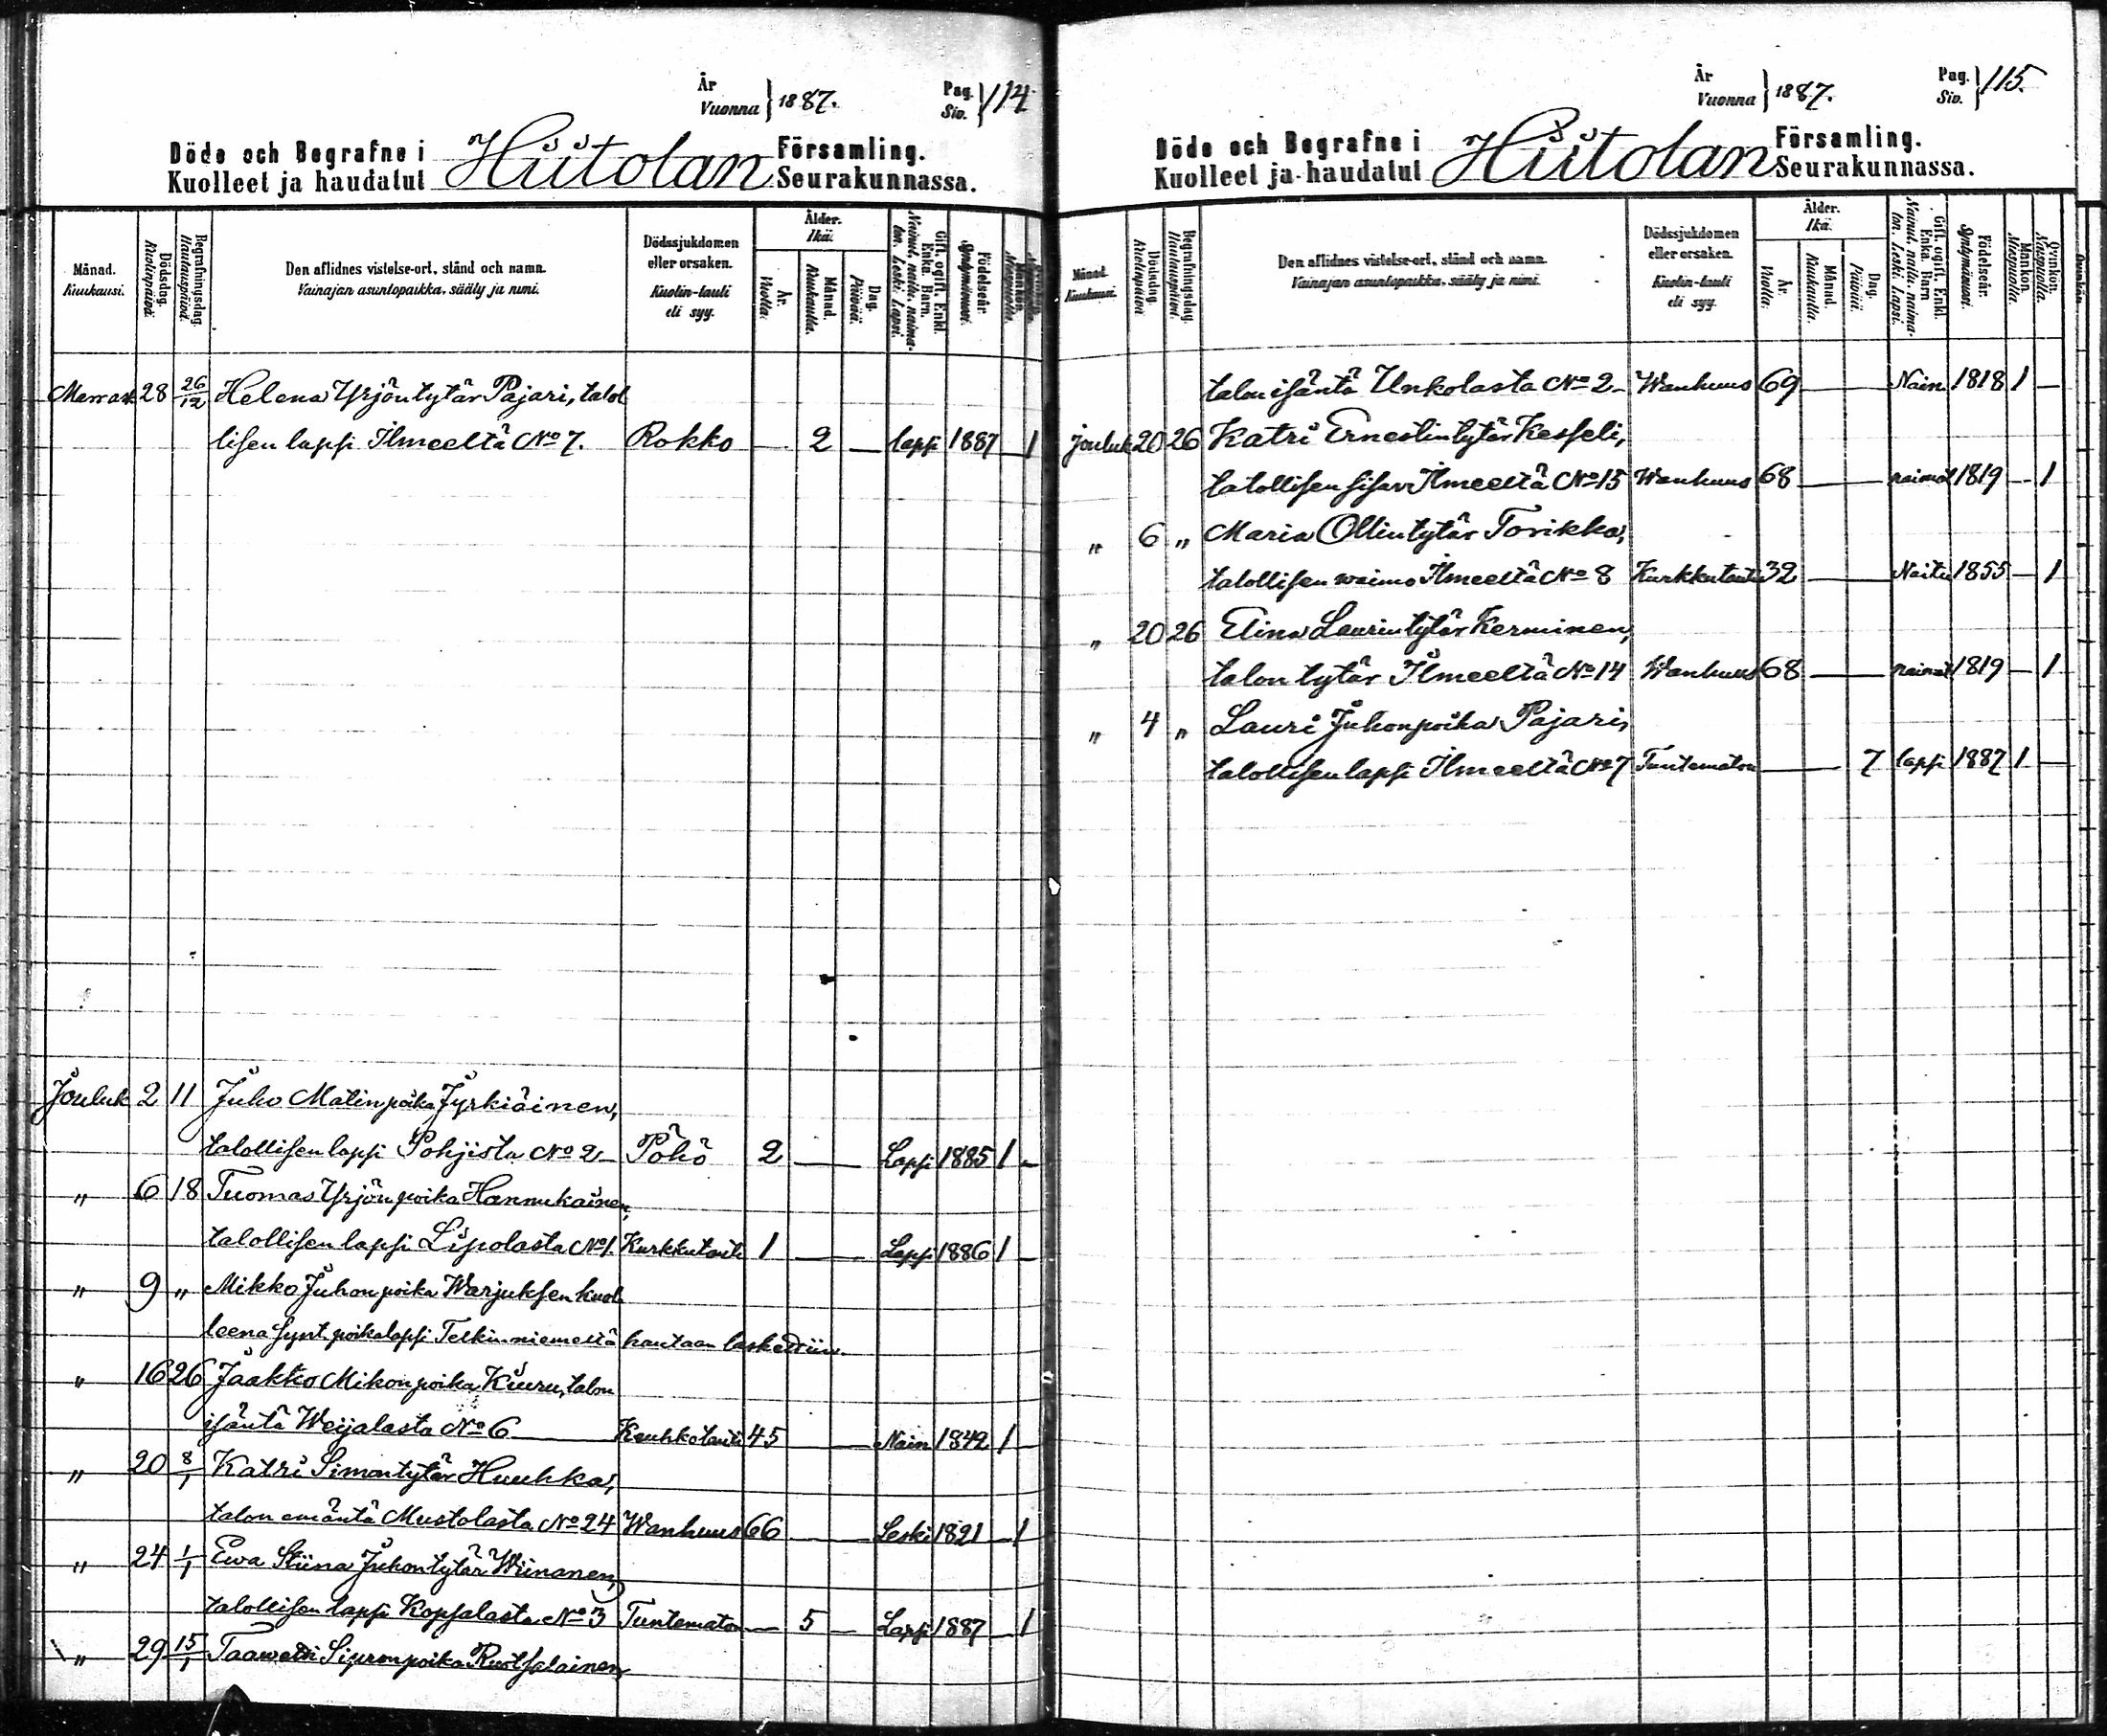 År
Vuonna } 1887.
Pag.
Siv. } 114
Döde och Begrafne i Hiitolan Församling.
Kuolleet ja haudatut Seurakunnassa.
Månad. Kuukausi.
Dödsdag. Kuolinpäivä.
Begrafningsdag. Hautauspäivä.
Den aflidnes vistelse-ort, stånd och namn.
Vainajan asuntopaikka, sääty ja nimi.
Dödssjukdomen eller orsaken.
Kuolin-tauti eli syy.
Ålder. Ikä.
År. Vuotta.
Månad. Kuukautta.
Dag. Päivää.
Gift, ogift, Enkl. Enka. Barn.
Nainut, naitu, naimaton. Leski. Lapsi.
Födelseår. Syntymävuosi.
Mankön. Miespuolta.
Marrask. 28 26/12 Helena Yrjöntytär Pajari, talol
lisen lapsi Ilmeeltä No 7. Rokko — 2 — lapsi 1887 — 1
Jouluk 2 11 Juho Matinpoika Jyrkiäinen,
talollisen lapsi Pohjista No 2 — Pöhö 2 — Lapsi 1885 1 —
" 6 18 Tuomas Yrjönpoika Hannukainen,
talollisen lapsi Lipolasta No 1. Kurkkutauti 1 — Lapsi 1886 1 —
" 9 " Mikko Juhonpoika Warjuksen kuol
leena synt. poikalapsi Tetkinniemeltä hautaan laskettiin.
" 16 26 Jaakko Mikonpoika Kiuru, talon
isäntä Weijalasta No 6 — Keuhkotauti 45 — Nain 1842 1 —
" 20 8/1 Katri Simontytär Huuhka,
talon emäntä Mustolasta No 24 Wanhuus 66 — Leski 1821 — 1
" 24 1/1 Ewa Stiina Juhontytär Wiinanen,
talollisen lapsi Kopsalasta No 3 Tuntematon — 5 — Lapsi 1887 — 1
" 29 15/1 Taawetti Sipronpoika Ruotsalainen,
År
Vuonna } 1887.
Pag.
Siv. } 115.
Döde och Begrafne i Hiitolan Församling.
Kuolleet ja haudatut Seurakunnassa.
Månad. Kuukausi.
Dödsdag. Kuolinpäivä.
Begrafningsdag. Hautauspäivä.
Den aflidnes vistelse-ort, stånd och namn.
Vainajan asuntopaikka, sääty ja nimi.
Dödssjukdomen eller orsaken.
Kuolin-tauti eli syy.
Ålder. Ikä.
År. Vuotta.
Månad. Kuukautta.
Dag. Päivää.
Gift, ogift, Enkl. Enka. Barn
Nainut, naitu, naimaton. Leski. Lapsi.
Födelseår. Syntymävuosi.
Mankön. Miespuolta.
Qvinkön. Naispuolta.
talon isäntä Unkolasta No 2 — Wanhuus 69 — Nain 1818 1 —
Jouluk 20 26 Katri Ernestintytär Kesseli,
talollisen sisar Ilmeeltä No 15 Wanhuus 68 — naimat 1819 — 1
" 6 " Maria Ollintytär Torikka,
talollisen waimo Ilmeeltä No 8 Kurkkutauti 32 — Naitu 1855 — 1
" 20 26 Elina Laurintytär Kerminen,
talon tytär Ilmeeltä No 14 Wanhuus 68 — naimat 1819 — 1
" 4 " Lauri Juhonpoika Pajari,
talollisen lapsi Ilmeeltä No 7 Tuntematon — 7 lapsi 1887 1 —